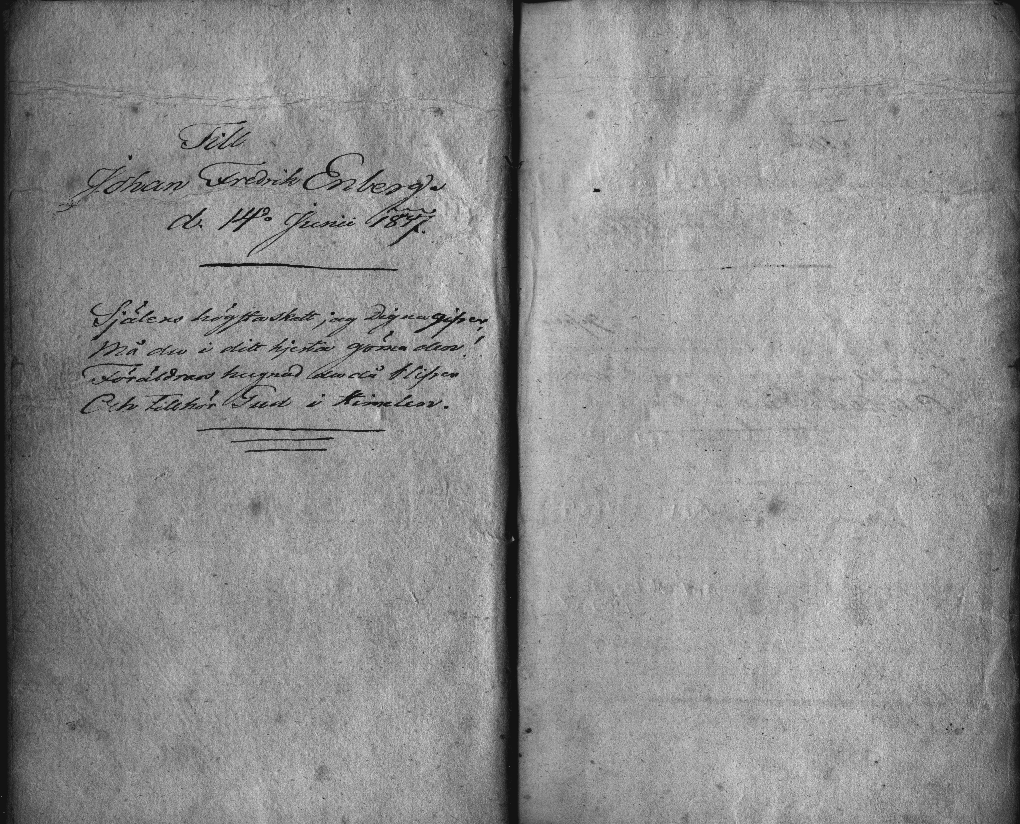 Till
Johan Fredrik Enberg
d. 14° Junii 1847.
Själens högsta skatt jag Dig nu gifver,
Må du i ditt hjerta gömma den!
Föräldrars hugnad du då blifver
Och tillhör Gud i Himmelen.